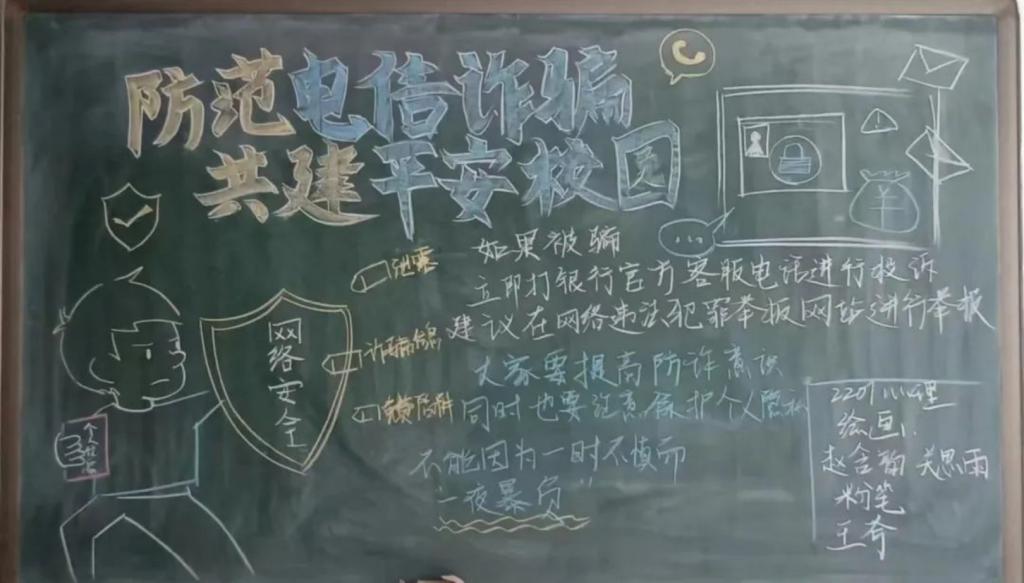 防范电信诈骗
共建平安校园
如果被骗
立即打银行官方客服电话进行投诉
建议在网络违法犯罪举报网站进行举报
大家要提高防诈意识
同时也要注意保护个人隐私
不能因为一时不慎而
一夜暴负"
泄露
诈骗
陷阱
网络安全
个人信息
¥
2201
绘画:
思雨
粉笔
王奇